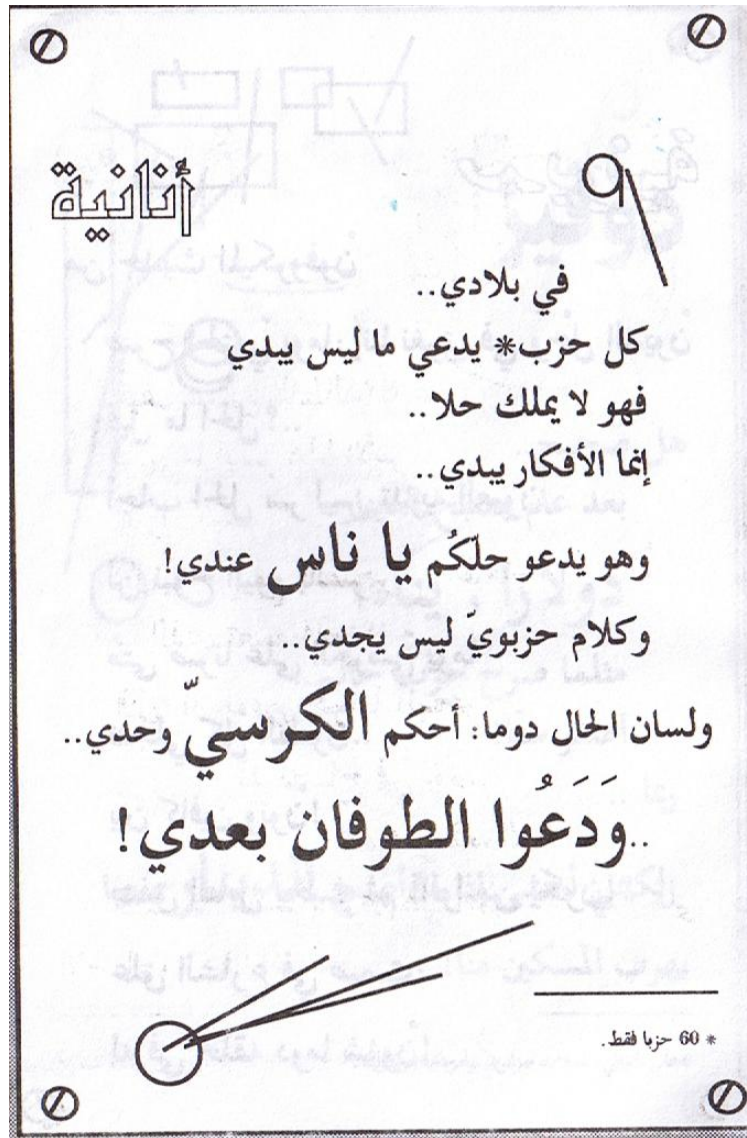 أنانية
في بلادي..
كل حزب* يدعي ما ليس يبدي
فهو لا يملك حلا..
إنما الأفكار يبدي..
وهو يدعو حلّكُم يا ناس عندي!
وكلام حزبويّ ليس يجدي..
ولسان الحال دوما: أحكم الكرسيّ وحدي..
..وَدَعُوا الطوفان بعدي!
* 60 حزبا فقط.